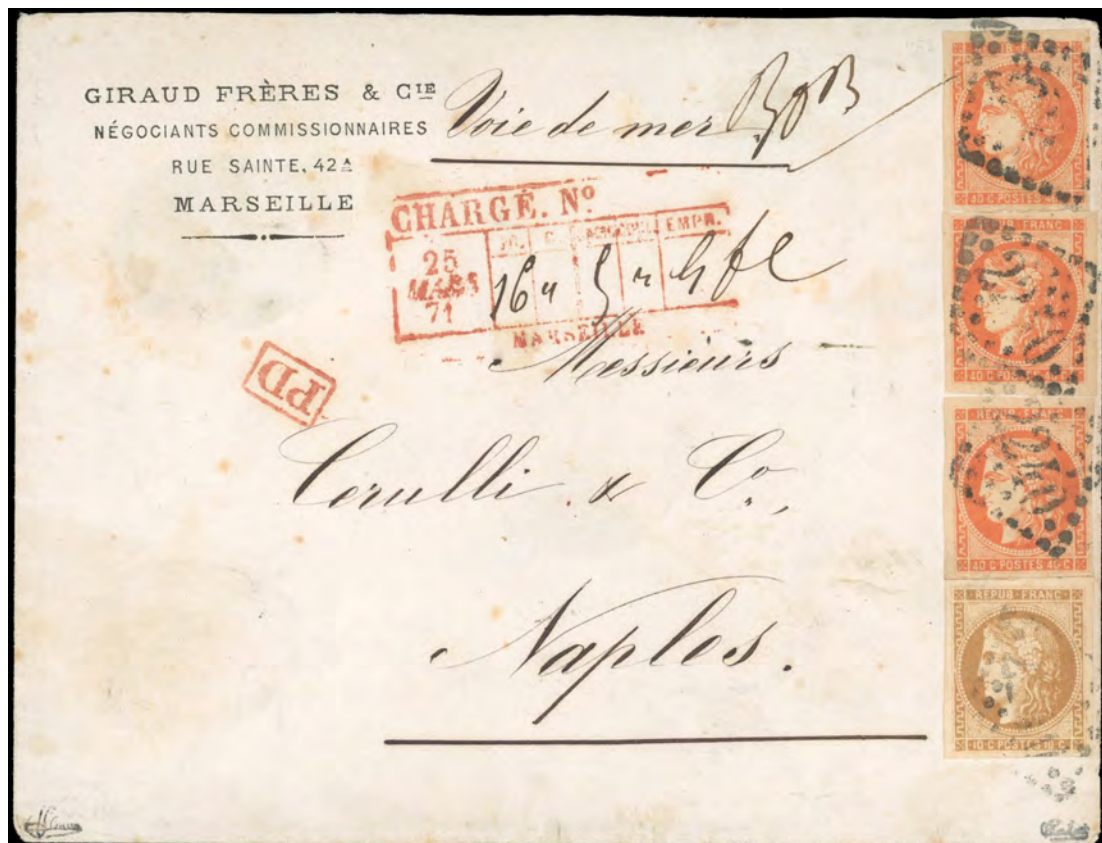 GIRAUD FRÈRES & CIE
NÉGOCIANTS COMMISSIONNAIRES
RUE SAINTE, 42A
MARSEILLE
Voie de mer
CHARGÉ. No
25
MARS
71
EMPR.
16
5
MARSEILLE
PD
Messieurs
Cerulli & Co,
Naples.
REPUB FRANC
40 C POSTES 40 C
REPUB FRANC
40 C POSTES 40 C
REPUB FRANC
40 C POSTES 40 C
REPUB FRANC
10 C POSTES 10 C